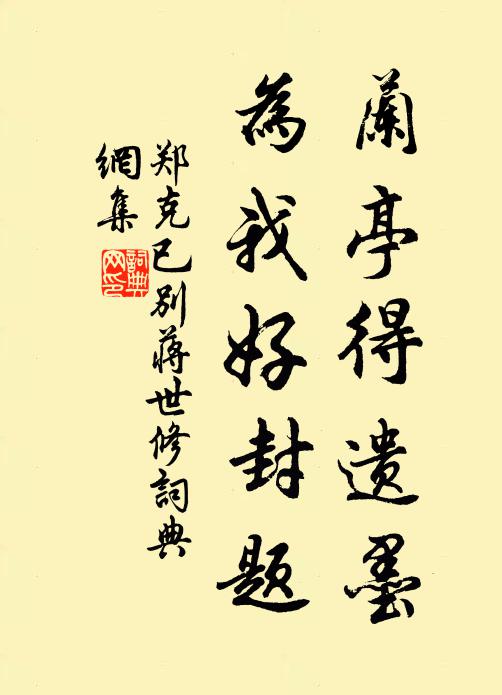 蘭亭得遗墨
為我好封题
郑克已别蒋世修詞典
網集
詞典
网印